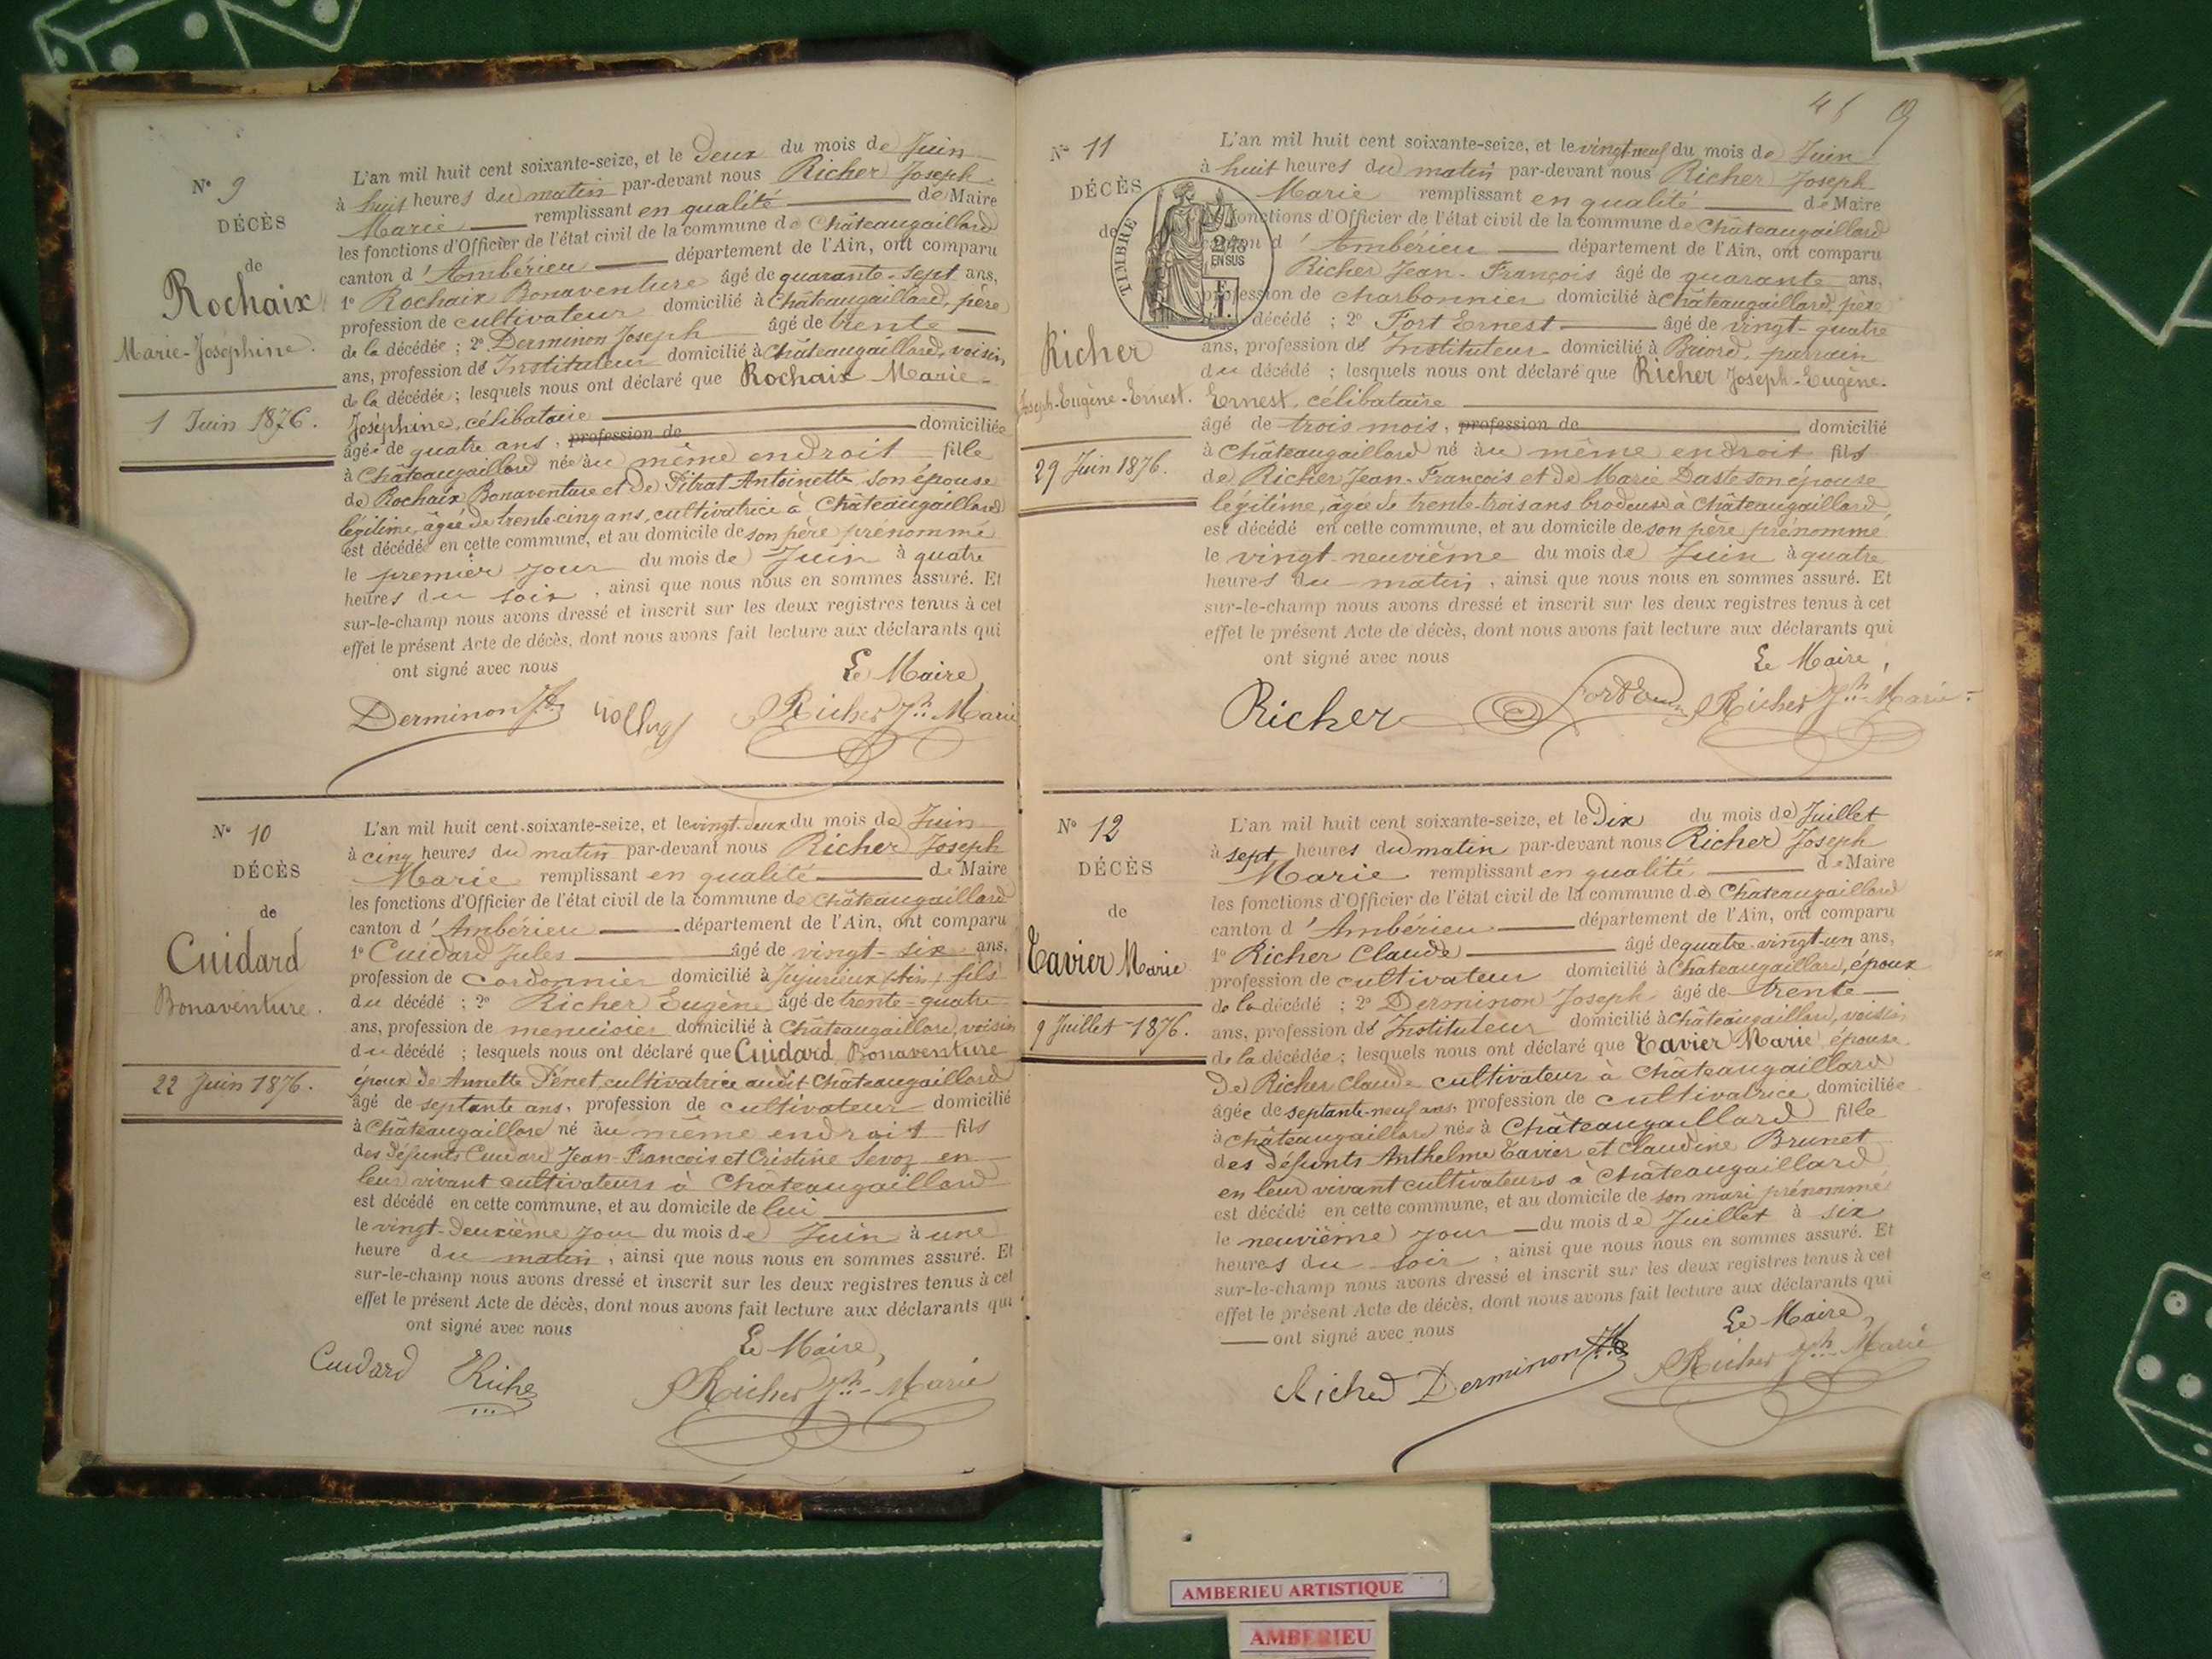 N° 9
DÉCÈS
de
Rochaix
Marie-Joséphine.
1 Juin 1876.
L'an mil huit cent soixante-seize, et le deux du mois de Juin
à huit heures du matin par-devant nous Richer Joseph
Marie remplissant en qualité de Maire
les fonctions d'Officier de l'état civil de la commune de Châteaugaillard
canton d'Ambérieu département de l'Ain, ont comparu
1° Rochaix Bonaventure âgé de quarante-sept ans,
profession de cultivateur domicilié à Châteaugaillard, père
de la décédée ; 2° Derminon Joseph âgé de trente
ans, profession d'Instituteur domicilié à Châteaugaillard, voisin
de la décédée ; lesquels nous ont déclaré que Rochaix Marie-
Joséphine, célibataire
âgée de quatre ans, profession de domiciliée
à Châteaugaillard née au même endroit fille
de Rochaix Bonaventure et de Titrat Antoinette son épouse
légitime, âgée de trente-cinq ans, cultivatrice à Châteaugaillard
est décédée en cette commune, et au domicile de son père prénommé
le premier jour du mois de Juin à quatre
heures du soir, ainsi que nous nous en sommes assuré. Et
sur-le-champ nous avons dressé et inscrit sur les deux registres tenus à cet
effet le présent Acte de décès, dont nous avons fait lecture aux déclarants qui
ont signé avec nous
Le Maire
Derminon Jh Richer Jh Marie
N° 10
DÉCÈS
de
Cuidard
Bonaventure.
22 Juin 1876.
L'an mil huit cent soixante-seize, et le vingt-deux du mois de Juin
à cinq heures du matin par-devant nous Richer Joseph
Marie remplissant en qualité de Maire
les fonctions d'Officier de l'état civil de la commune de Châteaugaillard
canton d'Ambérieu département de l'Ain, ont comparu
1° Cuidard Jules âgé de vingt-six ans,
profession de cordonnier domicilié à Jujurieux (Ain) fils
du décédé ; 2° Richer Eugène âgé de trente-quatre
ans, profession de menuisier domicilié à Châteaugaillard, voisin
du décédé ; lesquels nous ont déclaré que Cuidard Bonaventure
époux de Annette Pénet, cultivatrice audit Châteaugaillard
âgé de septante ans, profession de cultivateur domicilié
à Châteaugaillard né au même endroit fils
des défunts Cuidard Jean-François et Cristine Sevoz en
leur vivant cultivateurs à Châteaugaillard
est décédé en cette commune, et au domicile de lui
le vingt-deuxième jour du mois de Juin à une
heure du matin, ainsi que nous nous en sommes assuré. Et
sur-le-champ nous avons dressé et inscrit sur les deux registres tenus à cet
effet le présent Acte de décès, dont nous avons fait lecture aux déclarants qui
ont signé avec nous
Le Maire,
Cuidard Riche Richer Jh Marie
9
N° 11
DÉCÈS
de
Richer
Joseph-Eugène-Ernest.
29 Juin 1876.
TIMBRE
2/10
EN SUS
F.
1.
L'an mil huit cent soixante-seize, et le vingt-neuf du mois de Juin
à huit heures du matin par-devant nous Richer Joseph
Marie remplissant en qualité de Maire
fonctions d'Officier de l'état civil de la commune de Châteaugaillard
canton d'Ambérieu département de l'Ain, ont comparu
Richer Jean-François âgé de quarante ans,
profession de charbonnier domicilié à Châteaugaillard, père
décédé ; 2° Fort Ernest âgé de vingt-quatre
ans, profession d'Instituteur domicilié à Briord, parrain
du décédé ; lesquels nous ont déclaré que Richer Joseph-Eugène-
Ernest, célibataire
âgé de trois mois, profession de domicilié
à Châteaugaillard né au même endroit fils
de Richer Jean-François et de Marie Daste son épouse
légitime, âgée de trente-trois ans brodeuse à Châteaugaillard,
est décédé en cette commune, et au domicile de son père prénommé
le vingt-neuvième du mois de Juin à quatre
heures du matin, ainsi que nous nous en sommes assuré. Et
sur-le-champ nous avons dressé et inscrit sur les deux registres tenus à cet
effet le présent Acte de décès, dont nous avons fait lecture aux déclarants qui
ont signé avec nous
Le Maire,
Richer Richer Jh Marie
N° 12
DÉCÈS
de
Tavier Marie
9 Juillet 1876.
L'an mil huit cent soixante-seize, et le Dix du mois de Juillet
à sept heures du matin par-devant nous Richer Joseph
Marie remplissant en qualité de Maire
les fonctions d'Officier de l'état civil de la commune de Châteaugaillard
canton d'Ambérieu département de l'Ain, ont comparu
1° Richer Claude âgé de quatre-vingt-un ans,
profession de cultivateur domicilié à Châteaugaillard, époux
de la décédé ; 2° Derminon Joseph âgé de trente
ans, profession d'Instituteur domicilié à Châteaugaillard, voisin
de la décédée ; lesquels nous ont déclaré que Tavier Marie épouse
de Richer Claude cultivateur à Châteaugaillard
âgée de septante-neuf ans, profession de cultivatrice domiciliée
à Châteaugaillard née à Châteaugaillard fille
des défunts Anthelme Tavier et Claudine Brunet
en leur vivant cultivateurs à Châteaugaillard
est décédé en cette commune, et au domicile de son mari prénommé
le neuvième jour du mois de Juillet à six
heures du soir, ainsi que nous nous en sommes assuré. Et
sur-le-champ nous avons dressé et inscrit sur les deux registres tenus à cet
effet le présent Acte de décès, dont nous avons fait lecture aux déclarants qui
ont signé avec nous
Le Maire,
Richer Derminon Jh Richer Jh Marie
AMBERIEU ARTISTIQUE
AMBERIEU